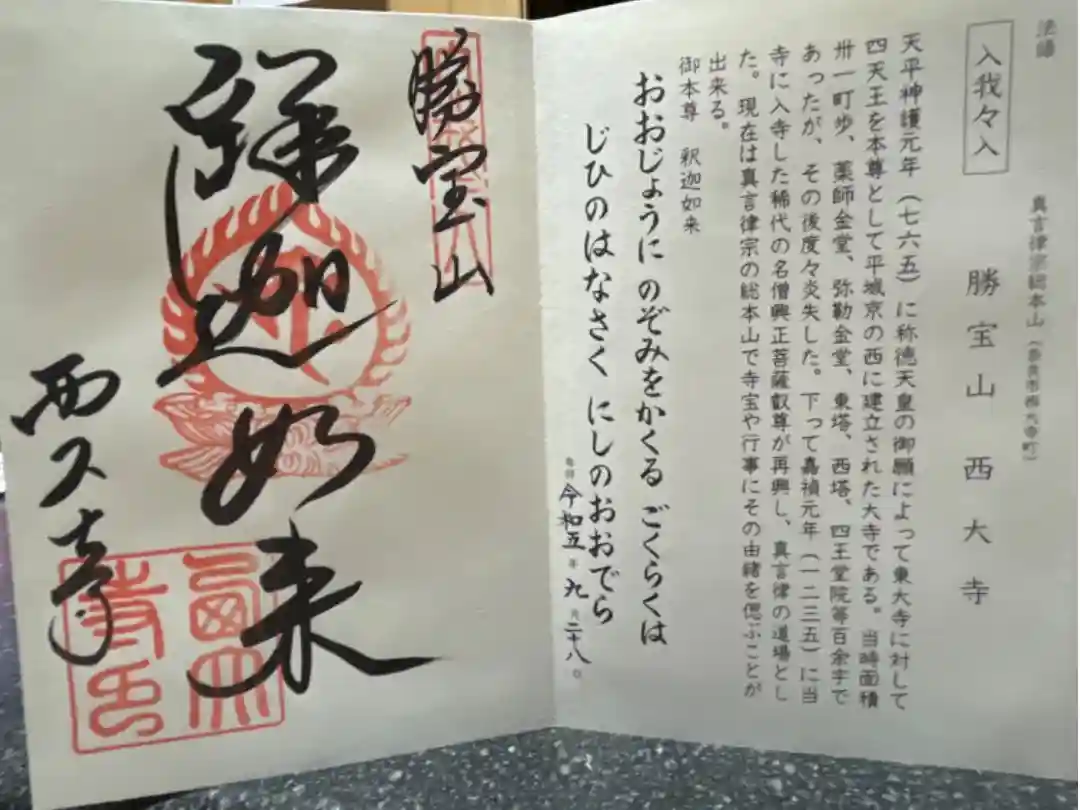 法師
真言律宗総本山(奈良市西大寺町)
入我々入
勝宝山 西大寺
天平神護元年(七六五)に称徳天皇の御願によって東大寺に対して
四天王を本尊として平城京の西に建立された大寺である。当時面積
卅一町歩、薬師金堂、弥勒金堂、東塔、西塔、四王堂院等百余宇で
あったが、その後度々炎失した。下って嘉禎元年(一二三五)に当
寺に入寺した稀代の名僧興正菩薩叡尊が再興し、真言律の道場とし
た。現在は真言律宗の総本山で寺宝や行事にその由緒を偲ぶことが
出来る。
御本尊 釈迦如来
おおじょうに のぞみをかくる ごくらくは
じひのはなさく にしのおおでら
令和五年九月二十八日
勝宝山
釋迦如来
西大寺